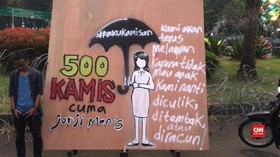 #aksikamisan
500
KAMIS
cuma
janji manis
kami akan
terus
melawan
karena tidak
mau anak
kami nanti
diculik,
ditembak,
atau
diracun.
CNN